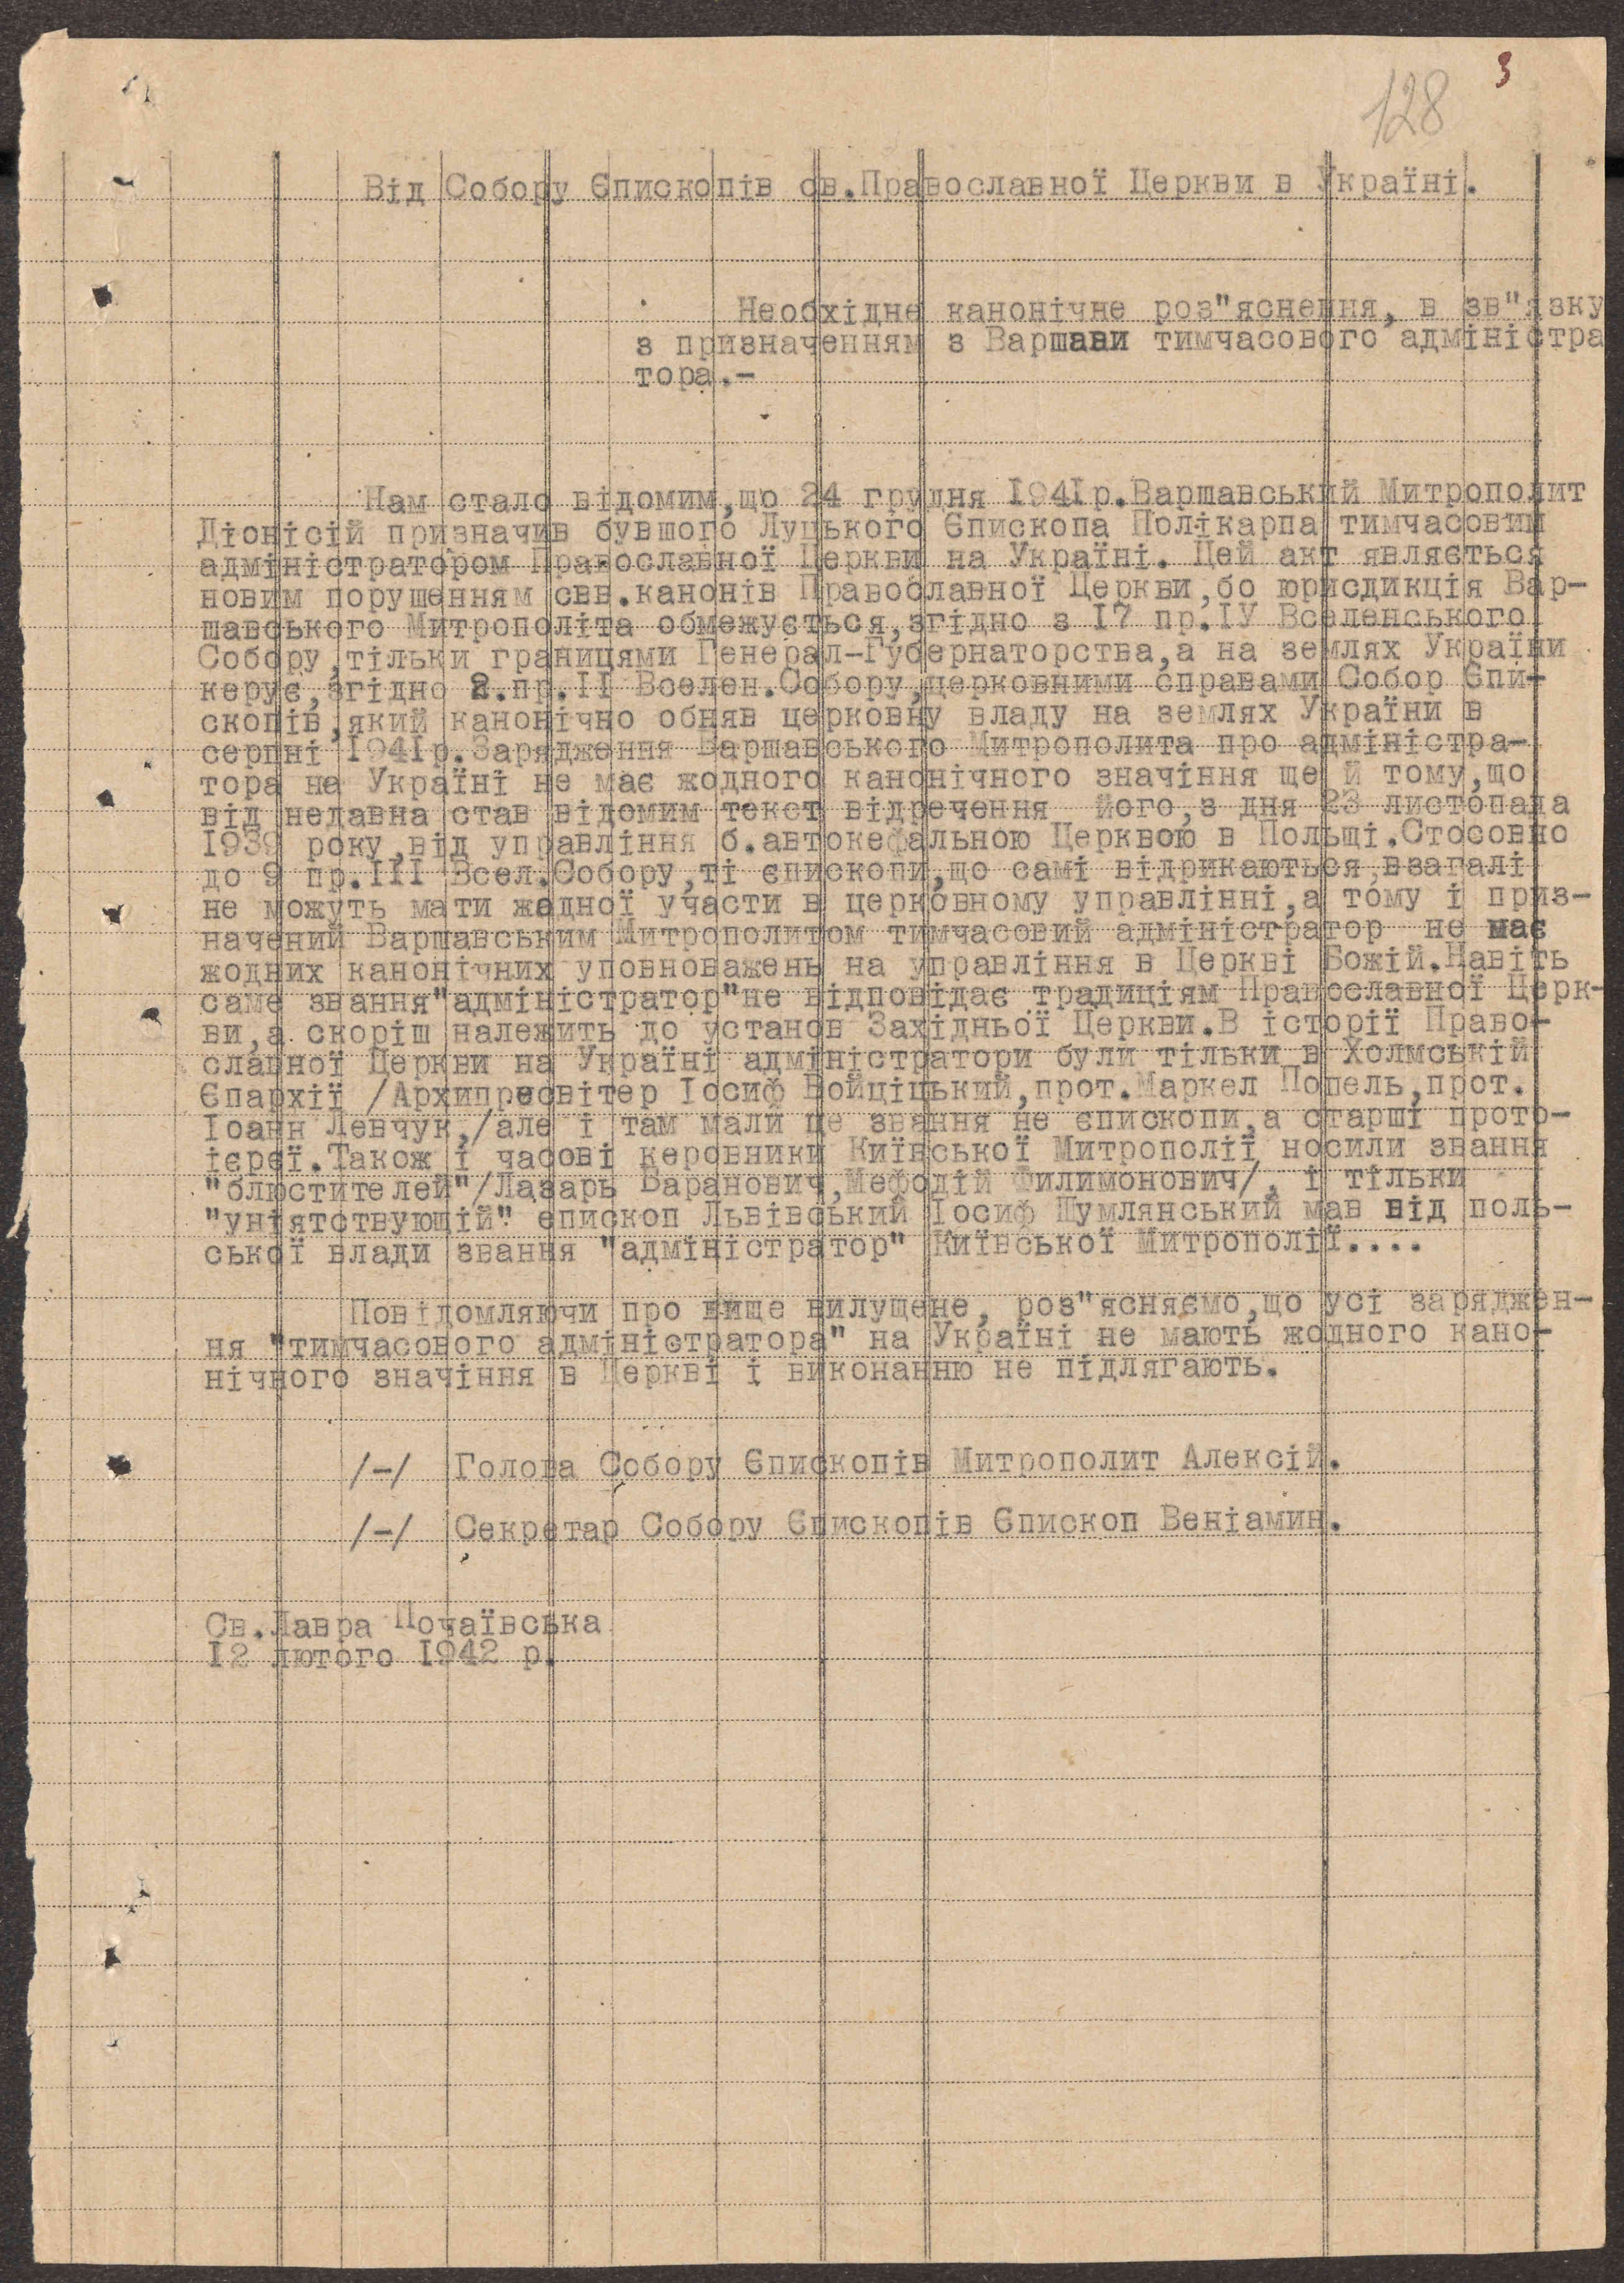 3
128
Від Собору Єпископів св.Православної Церкви в Україні.
Необхідне канонічне роз"яснення, в зв"язку
з призначенням з Варшави тимчасового адміністра
тора.-
Нам стало відомим,що 24 грудня I94Iр.Варшавський Митрополит
Діонісій призначив бувшого Луцького Єпископа Полікарпа тимчасовим
адміністратором Православної Церкви на Україні. Цей акт являється
новим порушенням свв.канонів Православної Церкви,бо юрисдикція Вар-
шавського Митрополіта обмежується,згідно з I7 пр.IУ Вселенського
Собору,тільки границями Генерал-Губернаторства,а на землях України
керує,згідно 2.пр.II Вселен.Собору,церковними справами Собор Єпи-
скопів,який канонічно обняв церковну владу на землях України в
серпні I94Iр.Зарядження Варшавського Митрополита про адміністра-
тора на Україні не має жодного канонічного значіння ще й тому,що
від недавна став відомим текст відречення його,з дня 23 листопада
I939 року,від управління б.автокефальною Церквою в Польщі.Стосовно
до 9 пр.III Всел.Собору,ті єпископи,що самі відрикаються,взагалі
не можуть мати жадної участи в церковному управлінні,а тому і приз-
начений Варшавським Митрополитом тимчасовий адміністратор не має
жодних канонічних уповноважень на управління в Церкві Божій.Навіть
саме звання"адміністратор"не відповідає традиціям Православної Церк-
ви,а скоріш належить до установ Західньої Церкви.В історії Право-
славної Церкви на Україні адміністратори були тільки в Холмській
Єпархії /Архипресвітер Іосиф Войціцький,прот.Маркел Попель,прот.
Іоанн Левчук,/але і там мали це звання не єпископи,а старші прото-
ієреї.Також і часові керовники Київської Митрополії носили звання
"блюстителей"/Лазарь Баранович,Мефодій Филимонович/, і тільки
"уніятствующій" епископ Львівський Іосиф Шумлянський мав від поль-
ської влади звання "адміністратор" Київської Митрополії....
Повідомляючи про вище вилущене, роз"ясняємо,що усі заряджен-
ня "тимчасового адміністратора" на Україні не мають жодного кано-
нічного значіння в Церкві і виконанню не підлягають.
/-/ Голова Собору Єпископів Митрополит Алексій.
/-/ Секретар Собору Єпископів Єпископ Веніамин.
Св.Лавра Почаївська
I2 лютого I942 р.